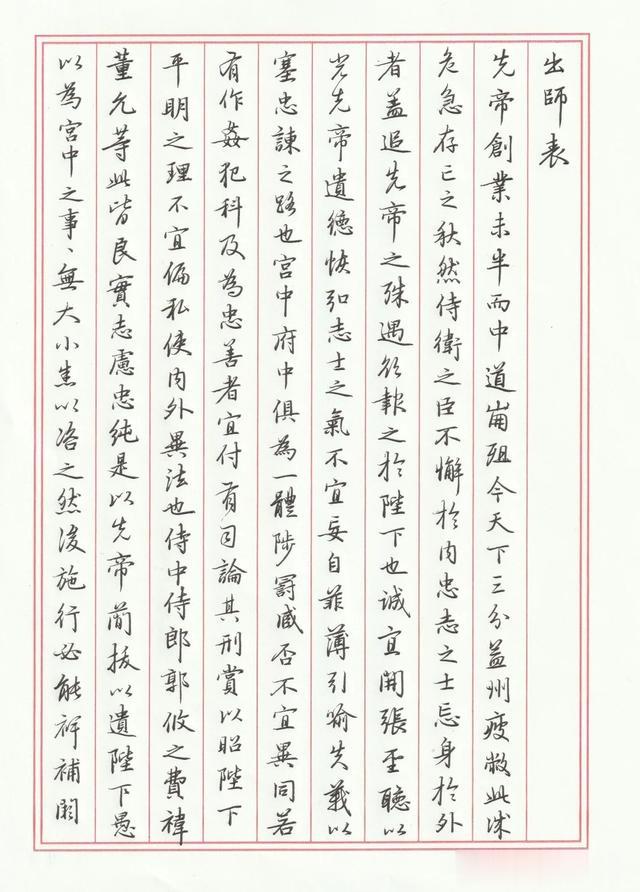 出師表
先帝創業未半而中道崩殂今天下三分益州疲敝此誠
危急存亡之秋然侍衛之臣不懈於內忠志之士忘身於外
者蓋追先帝之殊遇欲報之於陛下也誠宜開張聖聽以
光先帝遺德恢弘志士之氣不宜妄自菲薄引喻失義以
塞忠諫之路也宮中府中俱為一體陟罰臧否不宜異同若
有作姦犯科及為忠善者宜付有司論其刑賞以昭陛下
平明之理不宜偏私使內外異法也侍中侍郎郭攸之費禕
董允等此皆良實志慮忠純是以先帝簡拔以遺陛下愚
以為宮中之事、無大小悉以咨之然後施行必能裨補闕